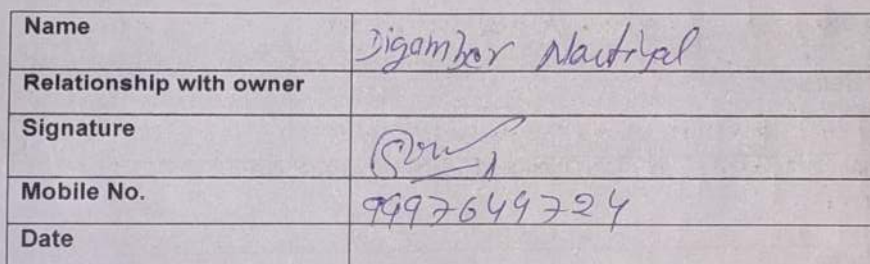 Name Digamber Nautiyal
Relationship with owner
Signature
Mobile No. 9997649724
Date